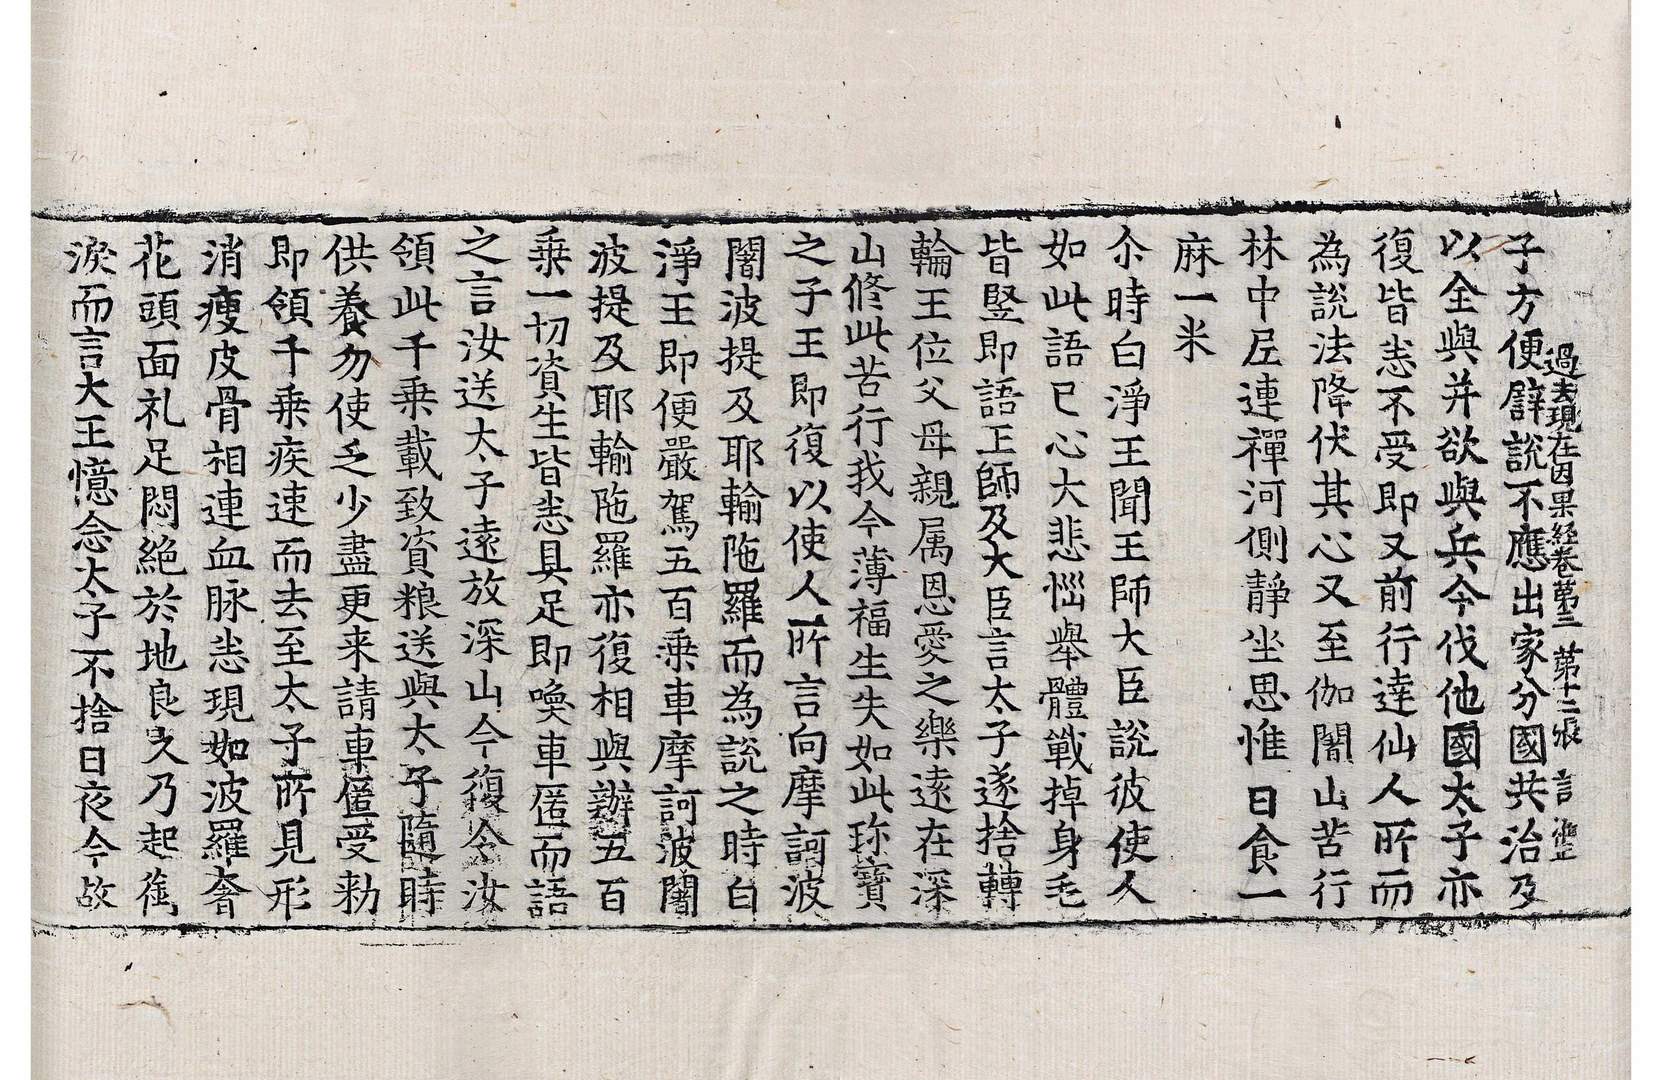 過去現在因果経卷第三 第十二張 言
子方便譬說不應出家分國共治及
以全與并欲與兵今伐他國太子亦
復皆悉不受即又前行達仙人所而
為說法降伏其心又至伽闍山苦行
林中尼連禪河側靜坐思惟日食一
麻一米
尒時白淨王聞王師大臣說彼使人
如此語已心大悲惱舉體戰掉身毛
皆竪即語王師及大臣言太子遂捨轉
輪王位父母親属恩愛之樂逺在深
山修此苦行我今薄福生失如此珎寶
之子王即復以使人所言向摩訶波
闍波提及耶輸陁羅而為說之時白
淨王即便嚴駕五百乗車摩訶波闍
波提及耶輸陁羅亦復相與辦五百
乗一切資生皆悉具足即喚車匿而語
之言汝送太子逺放深山今復令汝
領此千乗載致資粮送與太子隨時
供養勿使乏少盡更来請車匿受勑
即領千乗疾速而去至太子所見形
消瘦皮骨相連血脉悉現如波羅奢
花頭面礼足悶絕於地良久乃起銜
淚而言大王憶念太子不捨日夜今故